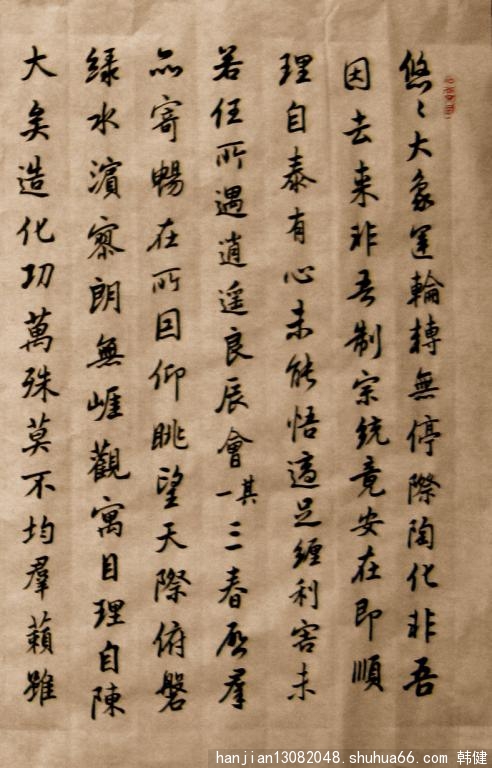 悠〻大象運輪轉無停際陶化非吾
因去來非吾制宗統竟安在即順
理自泰有心未能悟適足纏利害未
若任所遇逍遥良辰會其一三春啟羣
品寄暢在所因仰眺望天際俯磐
綠水濱寥朗無崕觀寓目理自陳
大矣造化功萬殊莫不均羣籟雖
hanjian13082048.shuhua66.com 韩健